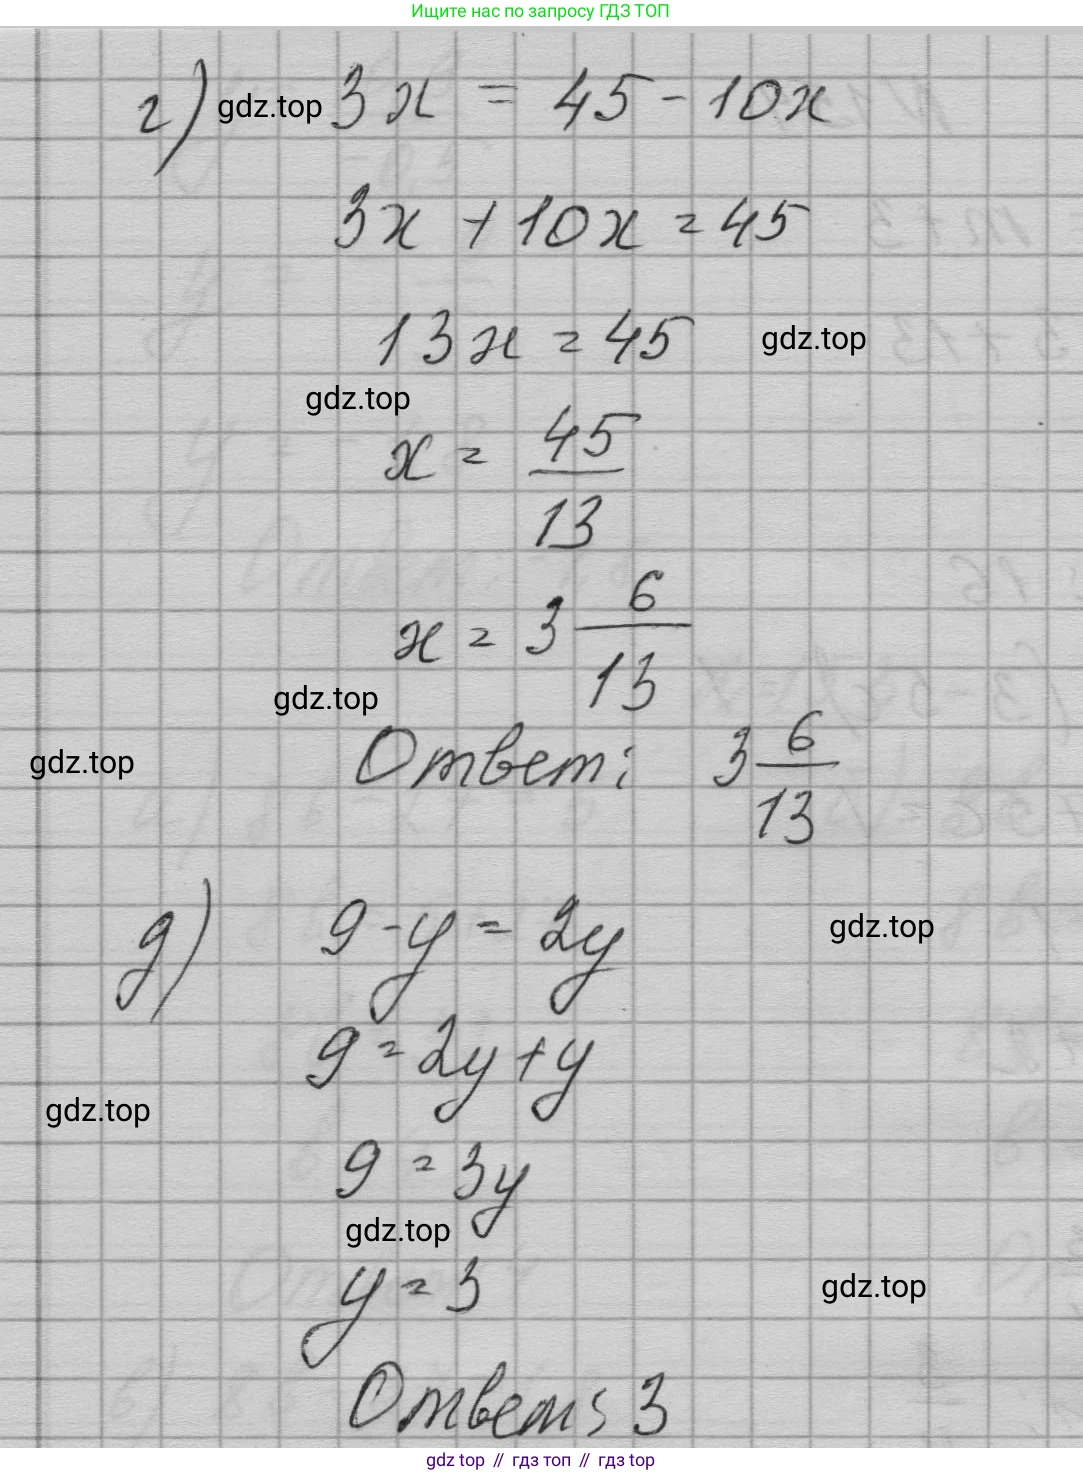 Ищите нас по запросу ГДЗ ТОП
г) gdz.top 3x = 45 - 10x
3x + 10x = 45
13x = 45 gdz.top
gdz.top
x = 45/13
x = 3 6/13
gdz.top
gdz.top Ответ: 3 6/13
д) 9 - y = 2y gdz.top
9 = 2y + y
gdz.top
9 = 3y
gdz.top
y = 3 gdz.top
Ответ: 3
gdz top // гдз топ // гдз top